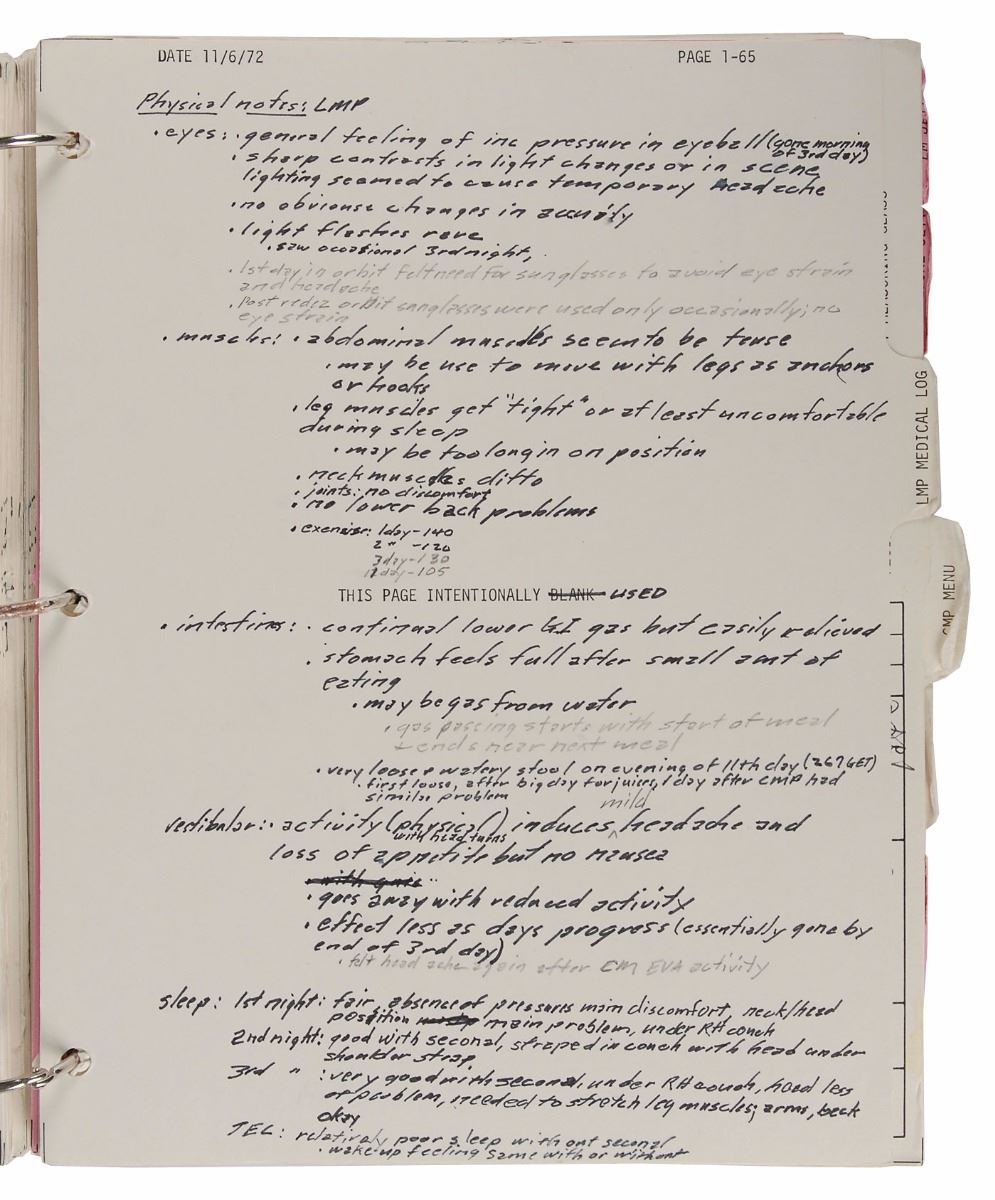 DATE 11/6/72 PAGE 1-65
Physical notes: LMP
• eyes: • general feeling of inc pressure in eyeball (gone morning
of 3rd day)
• sharp contrasts in light changes or in scene
lighting seemed to cause temporary headache
• no obviouse changes in acuaity
• light flashes rare
• saw occasional 3rd night,
• 1st day in orbit felt need for sunglasses to avoid eye strain
and headache
• Post redez orbit sunglasses were used only occasionally; no
eye strain
• muscles: • abdominal muscles seem to be tense
• may be use to move with legs as anchors
or hooks
• leg muscles get "tight" or at least uncomfortable
during sleep
• may be too long in on position
• neck muscles ditto
• joints: no discomfort
• no lower back problems
• exersise: 1day-140
2 " -120
3day-130
11day-105
THIS PAGE INTENTIONALLY BLANK USED
• intestines: • continual lower GI gas but easily relieved
• stomach feels full after small amt of
eating
• may be gas from water
• gas passing starts with start of meal
+ ends near next meal
• very loose + watery stool on evening of 11th day (267 GET)
• first loose, after big day for juices, 1 day after CMP had
similar problem
mild
vestibular: • activity (physical) induces ^ headache and
with head turns
loss of appetite but no nausea
• goes away with reduced activity
• effect less as days progress (essentially gone by
end of 3rd day)
• felt head ache again after CM EVA activity
sleep: 1st night: fair, absence of pressures main discomfort, neck/head
position main problem, under RH couch
2nd night: good with seconal, straped in couch with head under
shoulder strap
3rd " : very good with seconal, under RH couch, head less
of problem, needed to stretch leg muscles; arms, back
okay
TEC: relatively poor sleep without seconal
• wake-up feeling same with or without
LMP MEDICAL LOG
CMP MENU